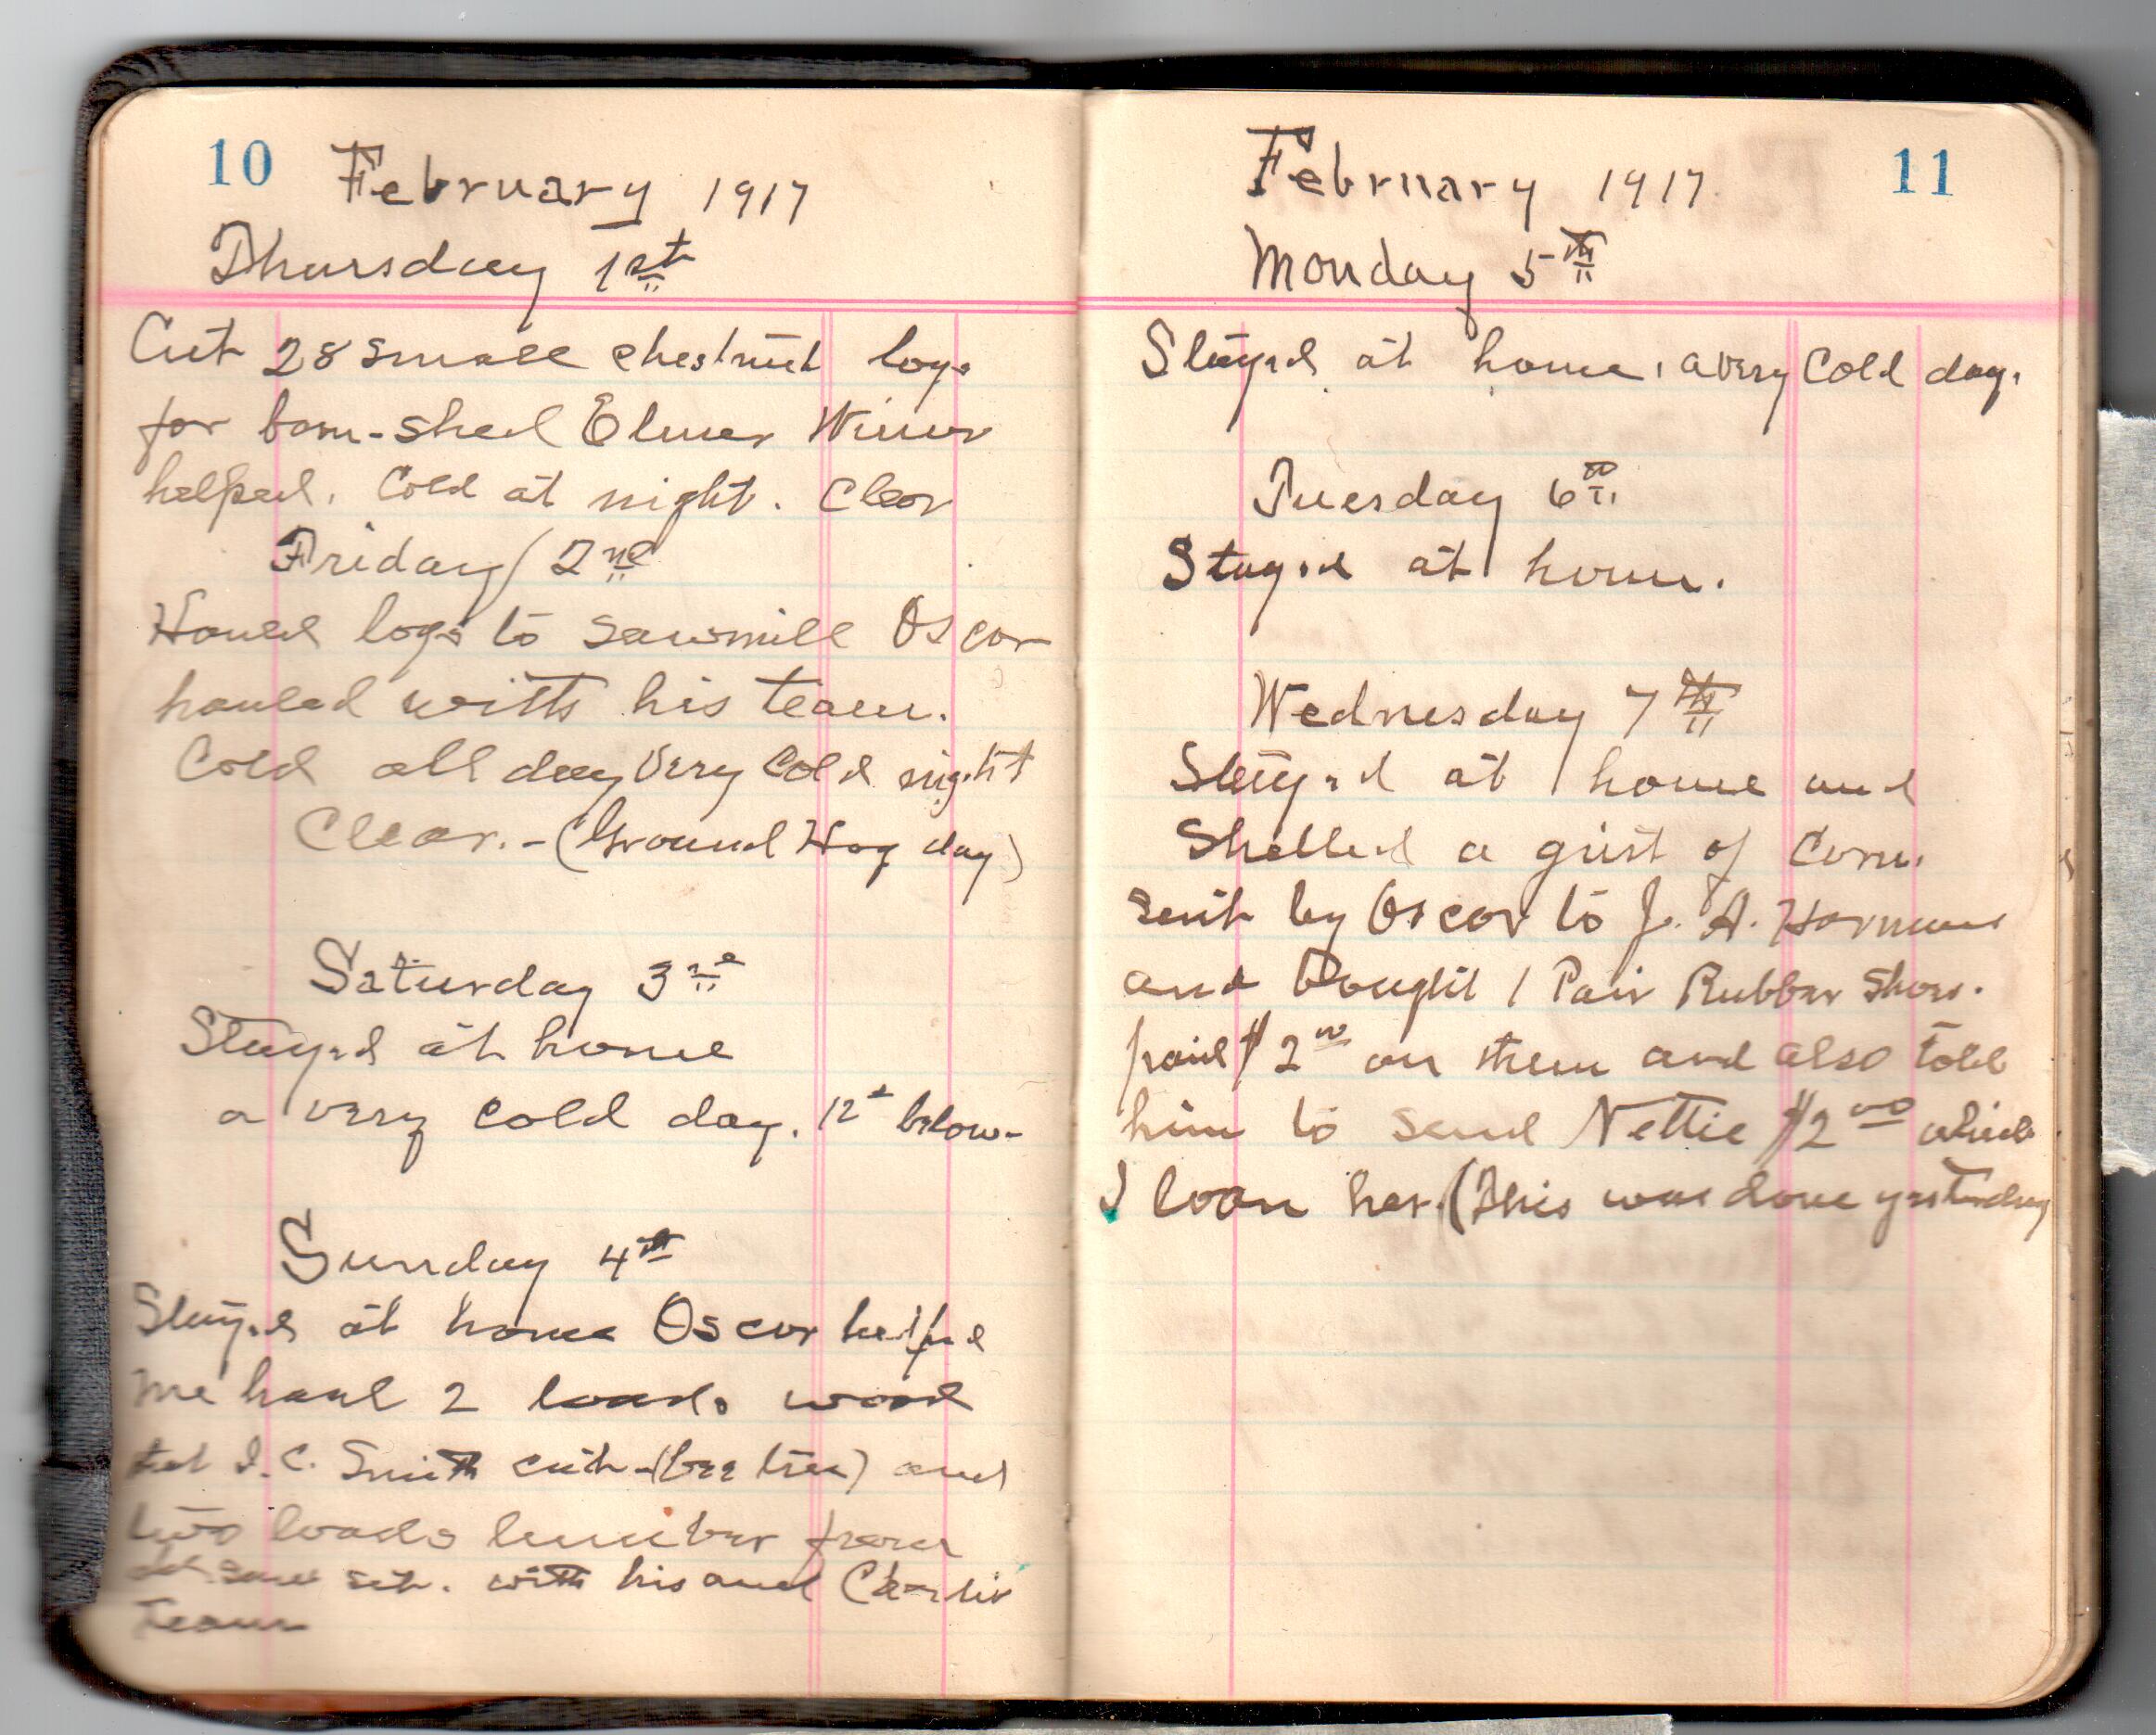 10 February 1917
Thursday 1st
Cut 28 small chestnut logs
for barn-shed Elmer
helped. Cold at night. Clear
Friday 2nd
Hauled logs to sawmill Oscar
hauled with his team.
Cold all day very cold night
Clear. - (Ground Hog day)
Saturday 3rd
Stayed at home
a very cold day. 12° below-
Sunday 4th
Stayed at home Oscar helped
me haul 2 loads wood
that J. C. Smith cut-(bee tree) and
two loads lumber from
old saw set. with his and Charlie
Team
February 1917 11
Monday 5th
Stayed at home, a very Cold day.
Tuesday 6th
Stayed at home.
Wednesday 7th
Stayed at home and
Shelled a grist of Corn.
sent by Oscar to J. A. Harmans
and Bought 1 Pair Rubber Shoes.
paid $2 00 on them and also told
him to send Nettie $2 00 which
I loan her. (This was done yesterday